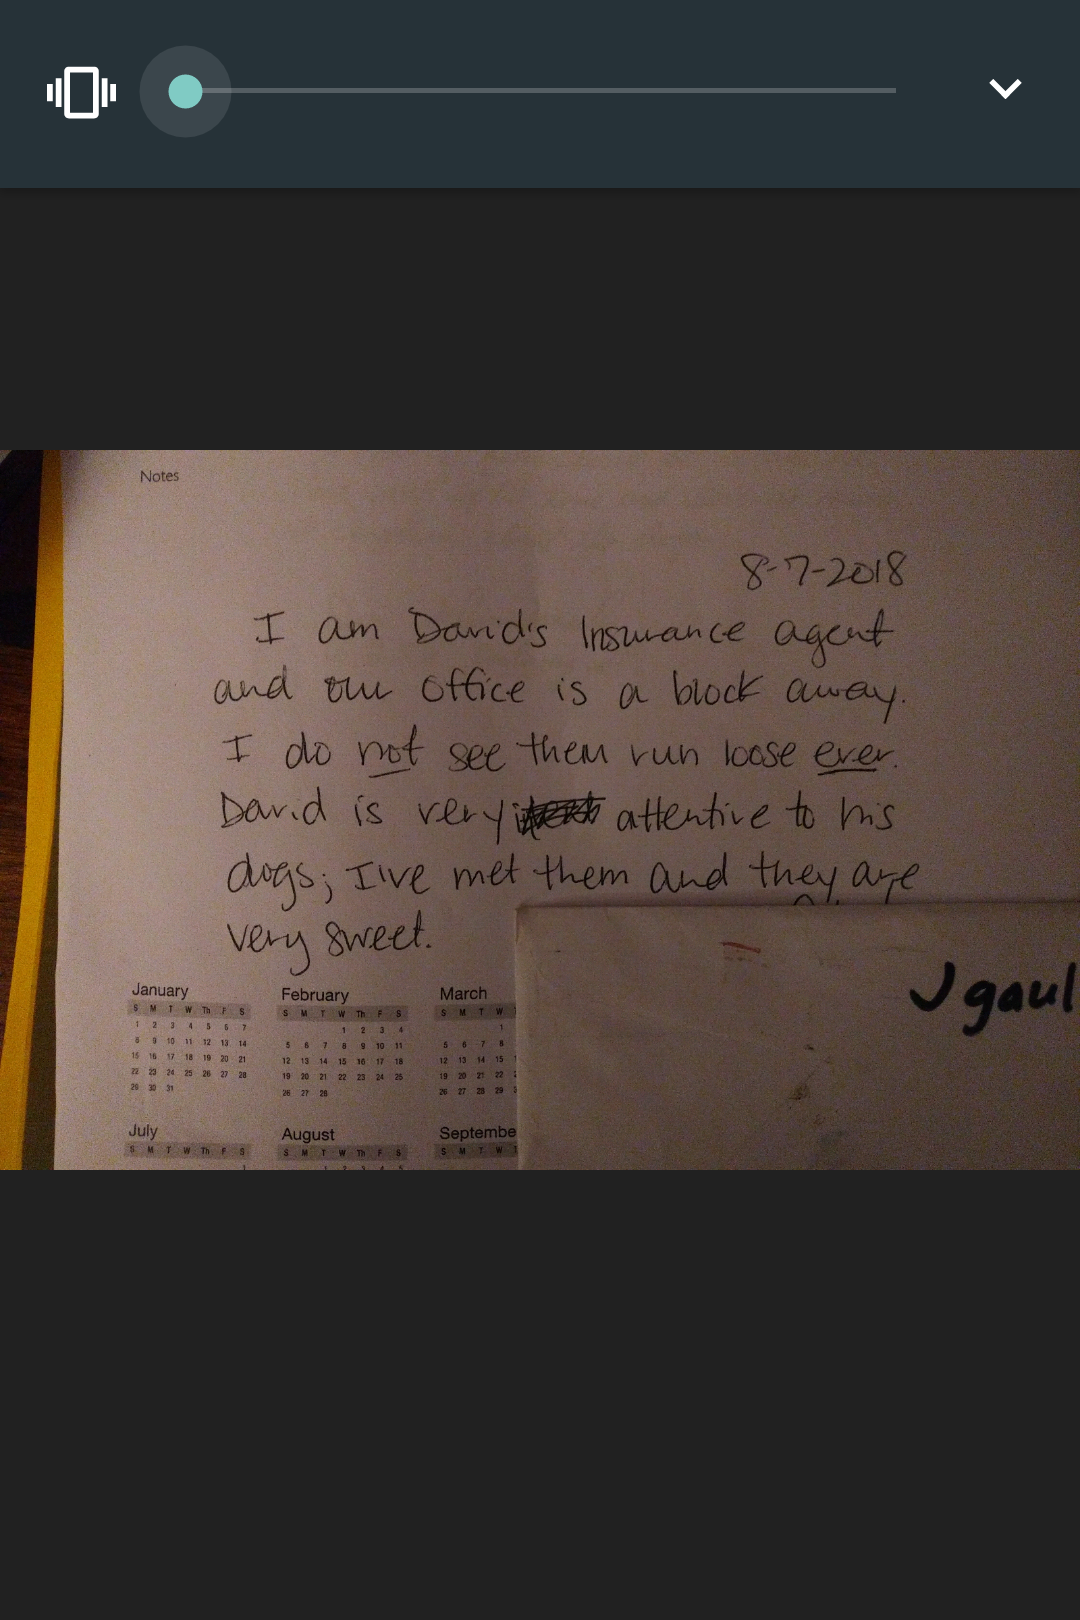 Notes
8-7-2018
I am David's Insurance agent
and our office is a block away.
I do not see them run loose ever.
David is very attentive to his
dogs; I've met them and they are
very sweet.
Jgaul
January
S M T W Th F S
1 2 3 4 5 6 7
8 9 10 11 12 13 14
15 16 17 18 19 20 21
22 23 24 25 26 27 28
29 30 31
February
S M T W Th F S
1 2 3 4
5 6 7 8 9 10 11
12 13 14 15 16 17 18
19 20 21 22 23 24 25
26 27 28
March
S M T W
1
5 6 7 8
12 13 14 15
19 20 21 22
26 27 28 29
July
S M T W Th F S
1
August
S M T W Th F S
1 2 3 4 5
Septembe
S M T W